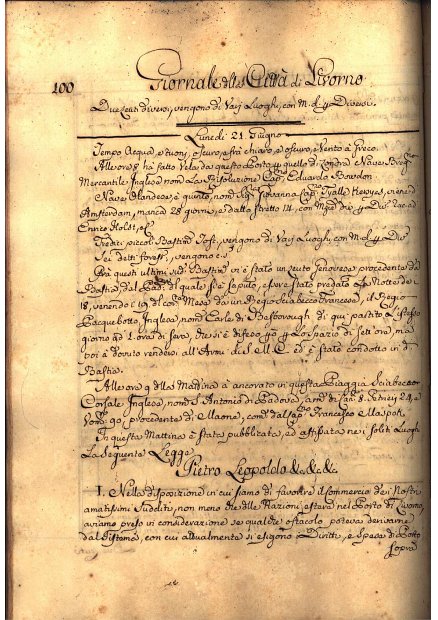 100 Giornale della Città di Livorno
Due Leuti diversi, vengono di Varj Luoghi, con M. di p. Diversi.
Lunedi 21. Giugno
Tempo Acqua, e tuoni, oscuro, e fra chiaro, e oscuro, e Vento a Greco.
All'ore 8 ha fatto Vela da questo Porto p quello di Londra Nave
Mercantile Inglese nom. La Risoluzione Cap. Eduardo Bowdon.
Nave Olandese, è giunto, nom. Sig. Giovanna Cap. Tyalle viene d'
Amsterdam, manca 28 giorni, e dallo stretto 14, con p Div.
Ennico Holst,
Tredici piccoli Bastim. Tosc., vengono di Varj Luoghi, con M. di p Div.
Sei detti forest., vengono
Frà questi ultimi Bastim. vi è stato un Leuto Genovese procedente da
Bastia, dal Pad. del quale si è saputo, essere stato predato la Notte de'
18, venendo il 19 del con. Mese da un Regio Sciabecco Francese, il Regio
Pacquebotto Inglese, nom. Carle di Besborough di qui partito L'istesso
giorno ad 1. ora di sera, che si è difeso p Lo spazio di sett'ore, mà
poi è dovuto rendersi all'Armi di S. M. C. ed è stato condotto in d.
Bastia.
All'ore 9 della Mattina è ancorato in questa Piaggia Sciabecco
Corsale Inglese, nom. S. Antonio di Padova, arm. di Can. 8. Petrieri 24, e
Uom. 90, procedente di Maone, com. dal Cap. Francesco
In questa Mattina è stata pubblicata, ed affissata nei soliti Luoghi
La Seguente Legge
Pietro Leopoldo &c. &c. &c.
I. Nella disposizione in cui siamo di favorire il Commercio dei Nostri
amatissimi Sudditi, non meno che delle Nazioni, estera nel Porto di Livorno,
aviamo preso in considerazione se qualche ostacolo poteva derivarne
dal Sistema, con cui attualmente si esigono i Diritti, e Spese di Porto
sopra